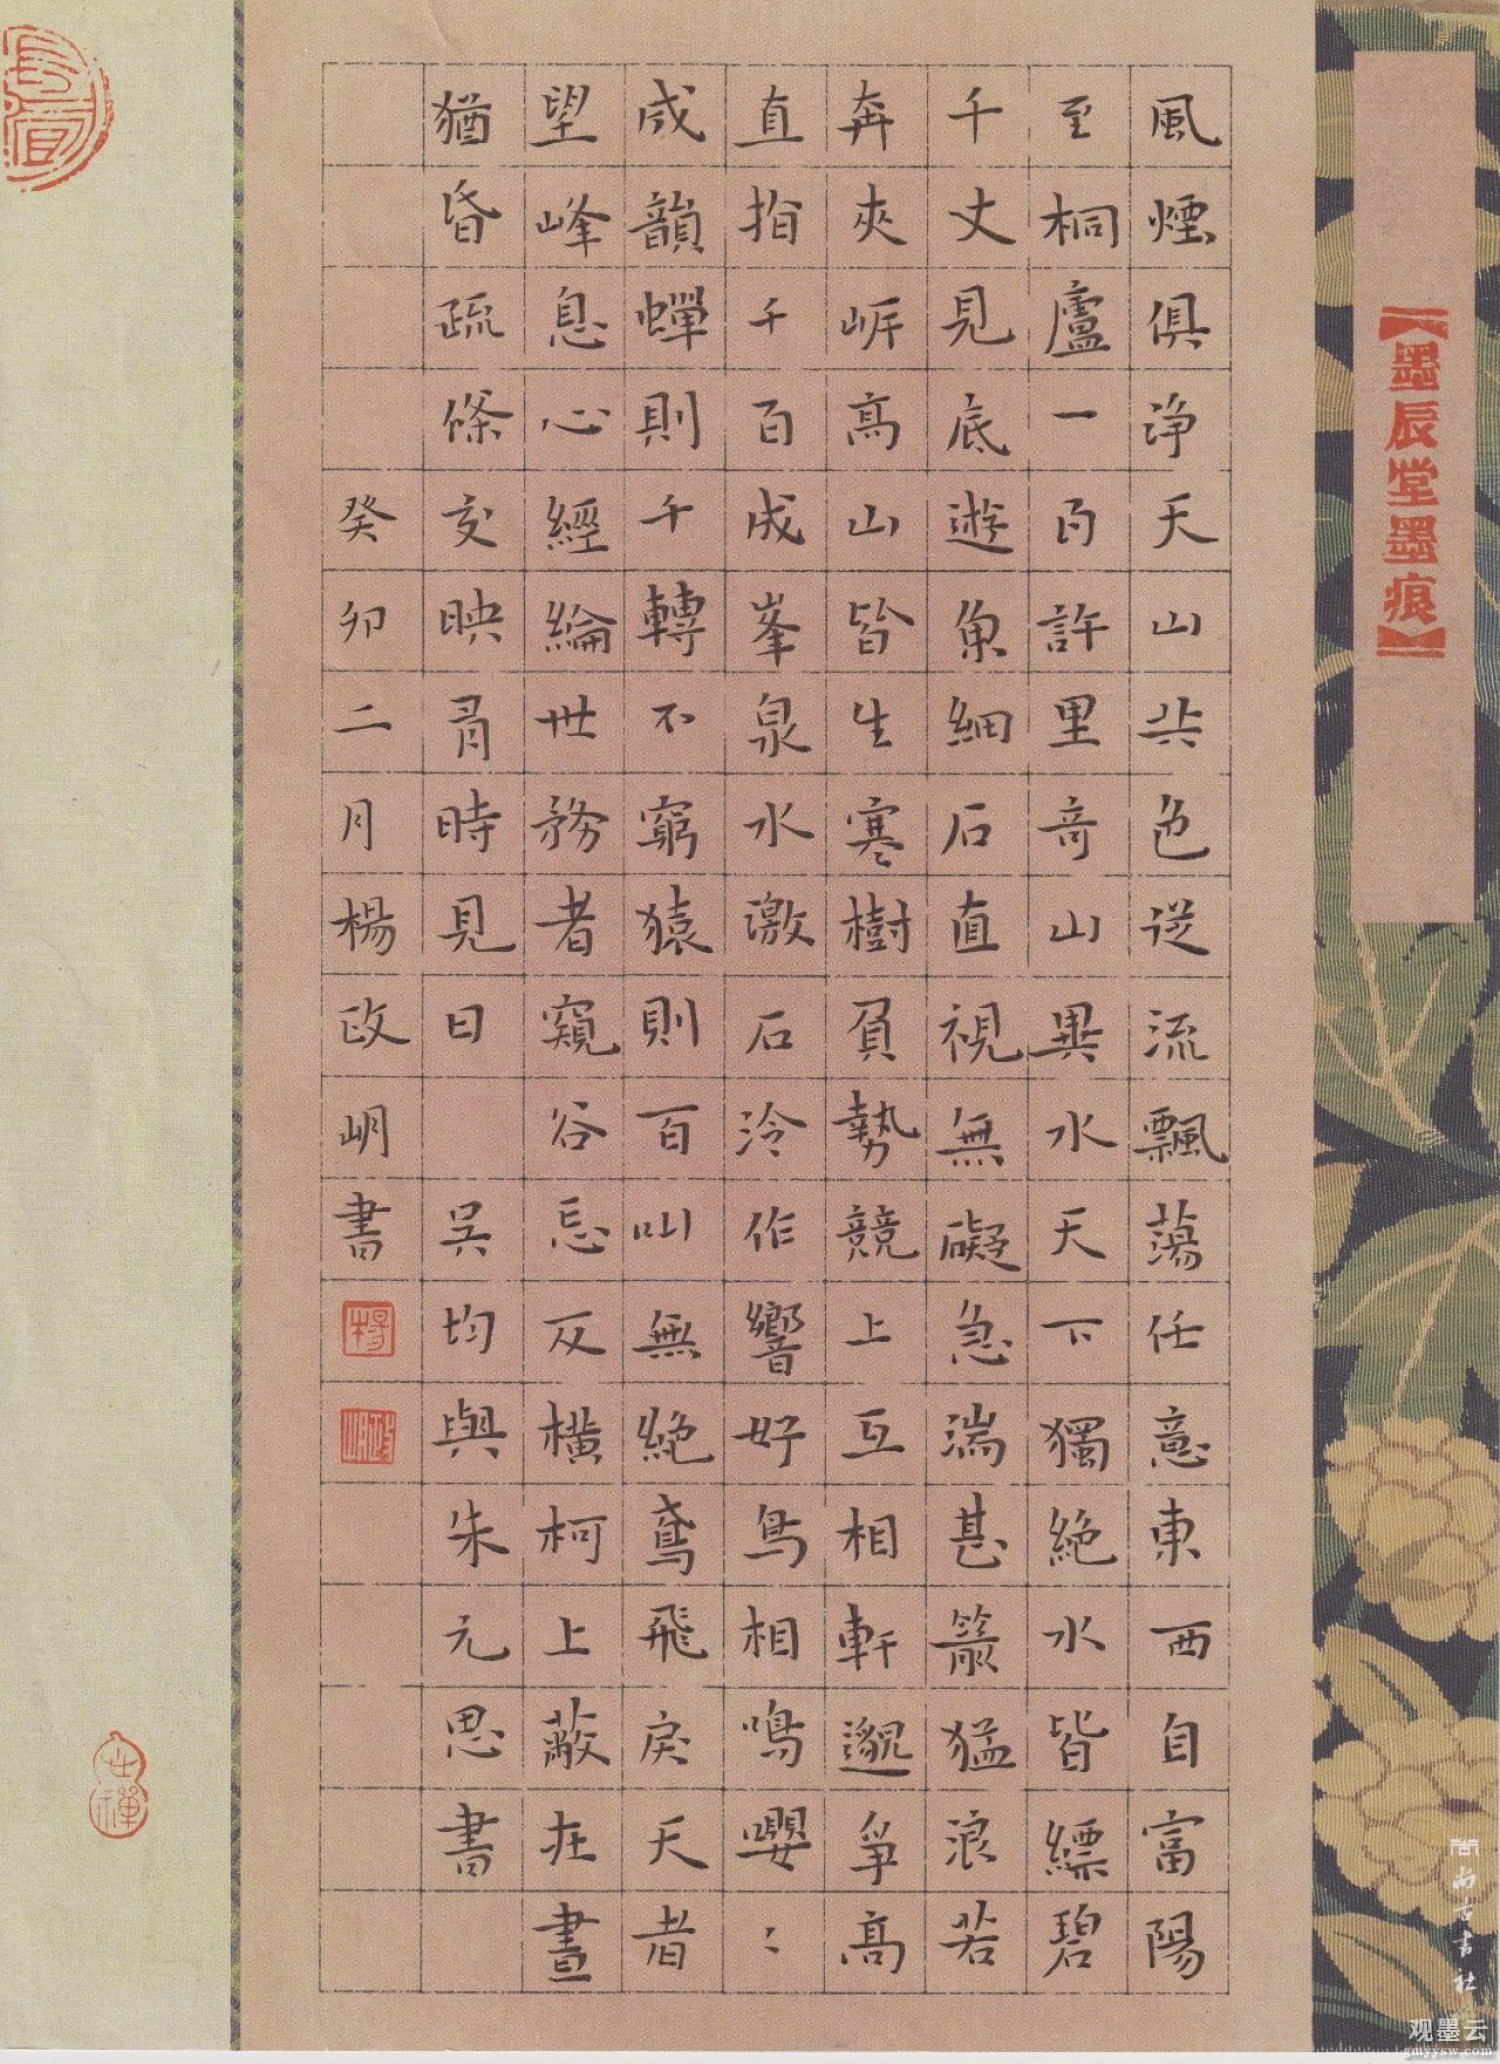 風煙俱淨天山共色從流飄蕩任意東西自富陽
至桐廬一百許里奇山異水天下獨絕水皆縹碧
千丈見底遊魚細石直視無礙急湍甚箭猛浪若
奔夾岸高山皆生寒樹負勢競上互相軒邈爭高
直指千百成峯泉水激石泠作響好鳥相鳴嚶〻
成韻蟬則千轉不窮猿則百叫無絕鳶飛戾天者
望峰息心經綸世務者窺谷忘反橫柯上蔽在晝
猶昏疏條交映有時見日 吳均與朱元思書
癸卯二月楊政明書
楊
【墨辰堂墨痕】
尚古書社
观墨云
gmyysw.com